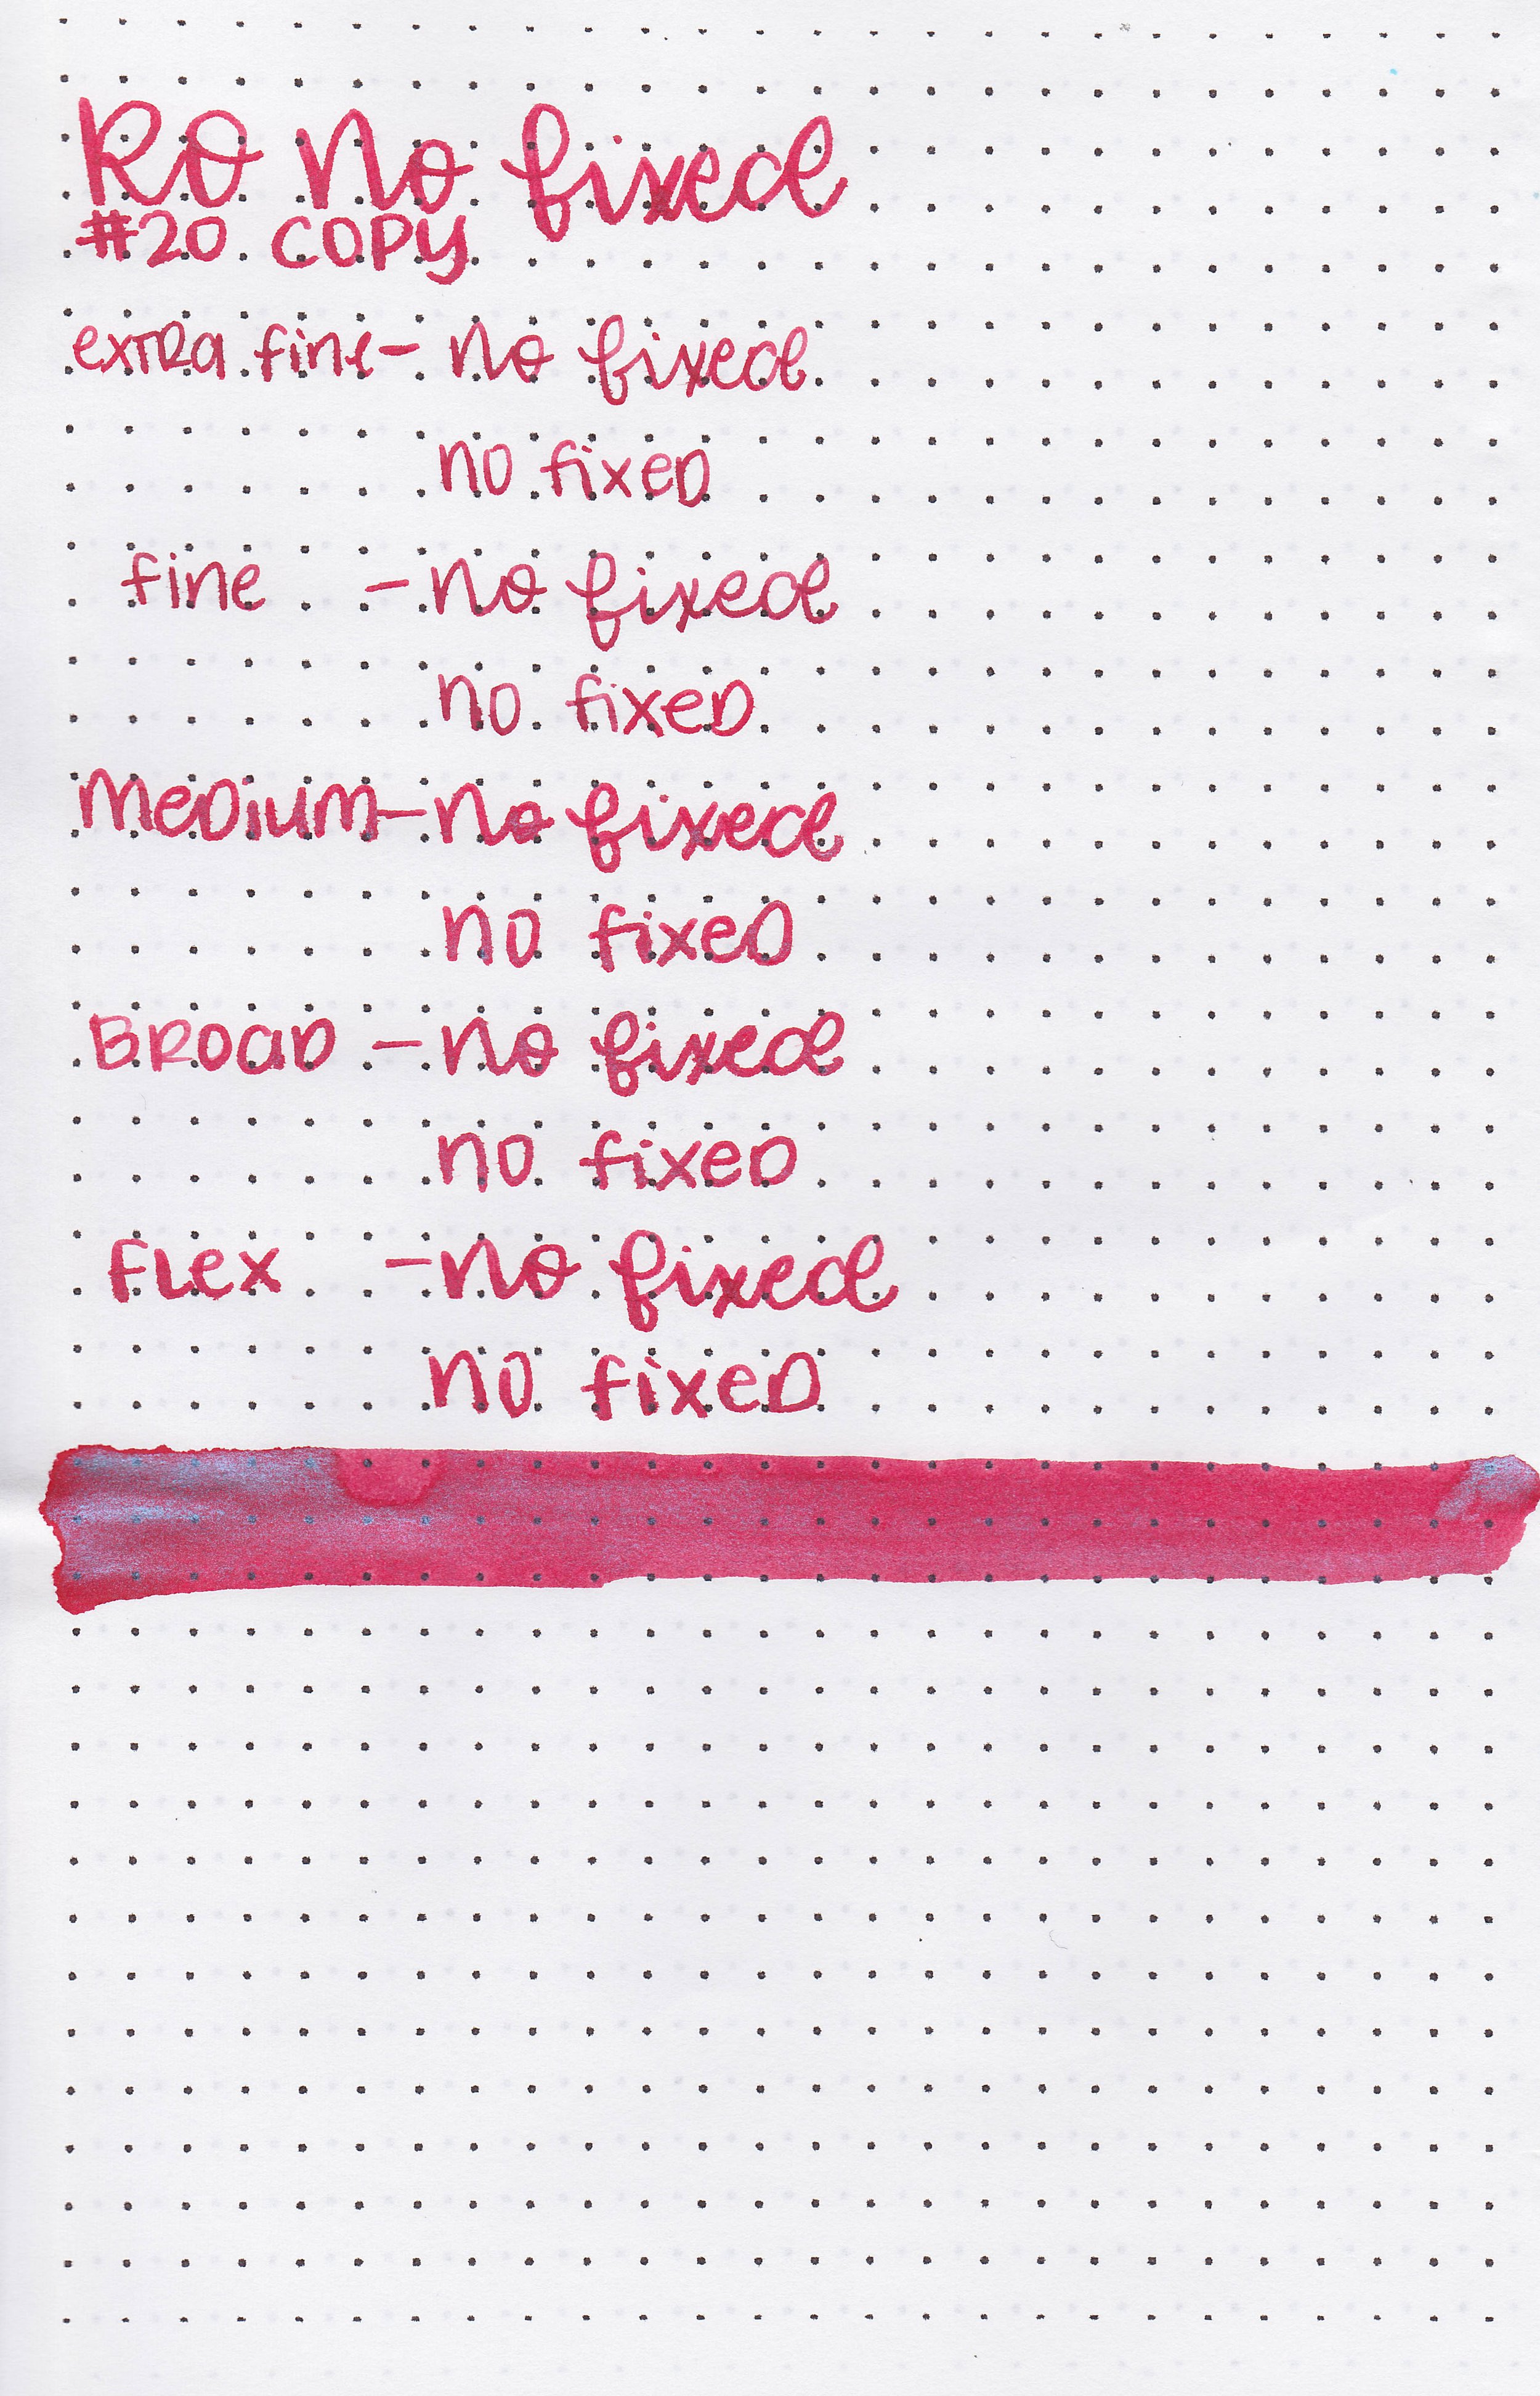 RO no fixed
#20 COPY
extra fine - no fixed
no fixed
fine - no fixed
no fixed
MeDium - no fixed
no fixed
BROaD - no fixed
no fixed
FLex - no fixed
no fixed